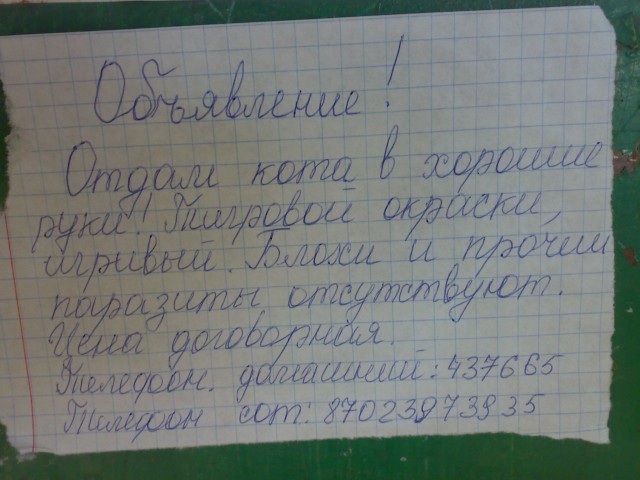 Объявление!
Отдам кота в хорошие
руки! Тигровой окраски,
игривый. Блохи и прочии
паразиты отсутствуют.
Цена договорная.
Телефон. домашний: 437665
Телефон сот: 87023973935